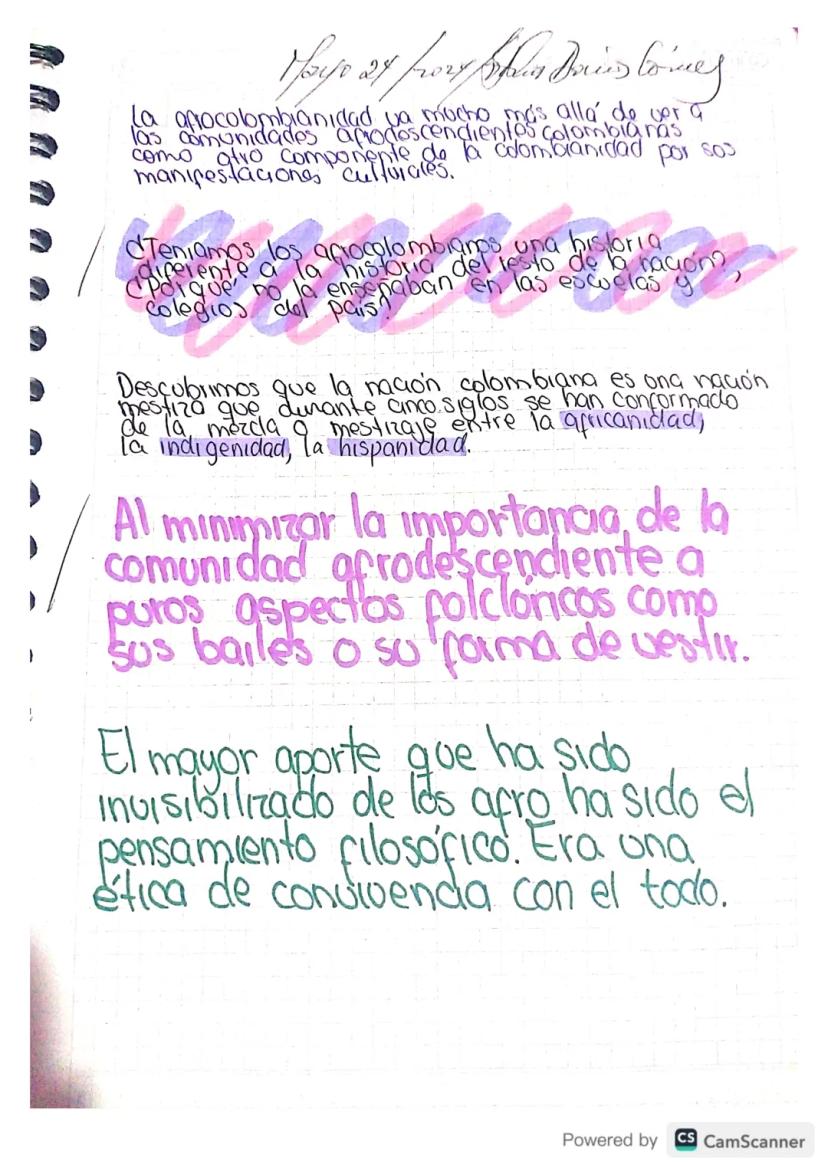 Mayo 24/2024/ Gómez
La afrocolombianidad va mucho más allá de ver a
las comunidades afrodescendientes colombianas
como otro componente de la colombianidad por sus
manifestaciones culturales.
¿Teniamos los afrocolombianos una historia
diferente a la historia del resto de la nación?,
¿Por qué no la enseñaban en las escuelas y
colegios del país?
Descubrimos que la nación colombiana es una nación
mestiza que durante cinco siglos se han conformado
de la mezcla o mestizaje entre la africanidad,
la indigenidad, la hispanidad.
Al minimizar la importancia de la
comunidad afrodescendiente a
puros aspectos folclóricos como
sus bailes o su forma de vestir.
El mayor aporte que ha sido
invisibilizado de los afro ha sido el
pensamiento filosófico. Era una
ética de convivencia con el todo.
Powered by CS CamScanner